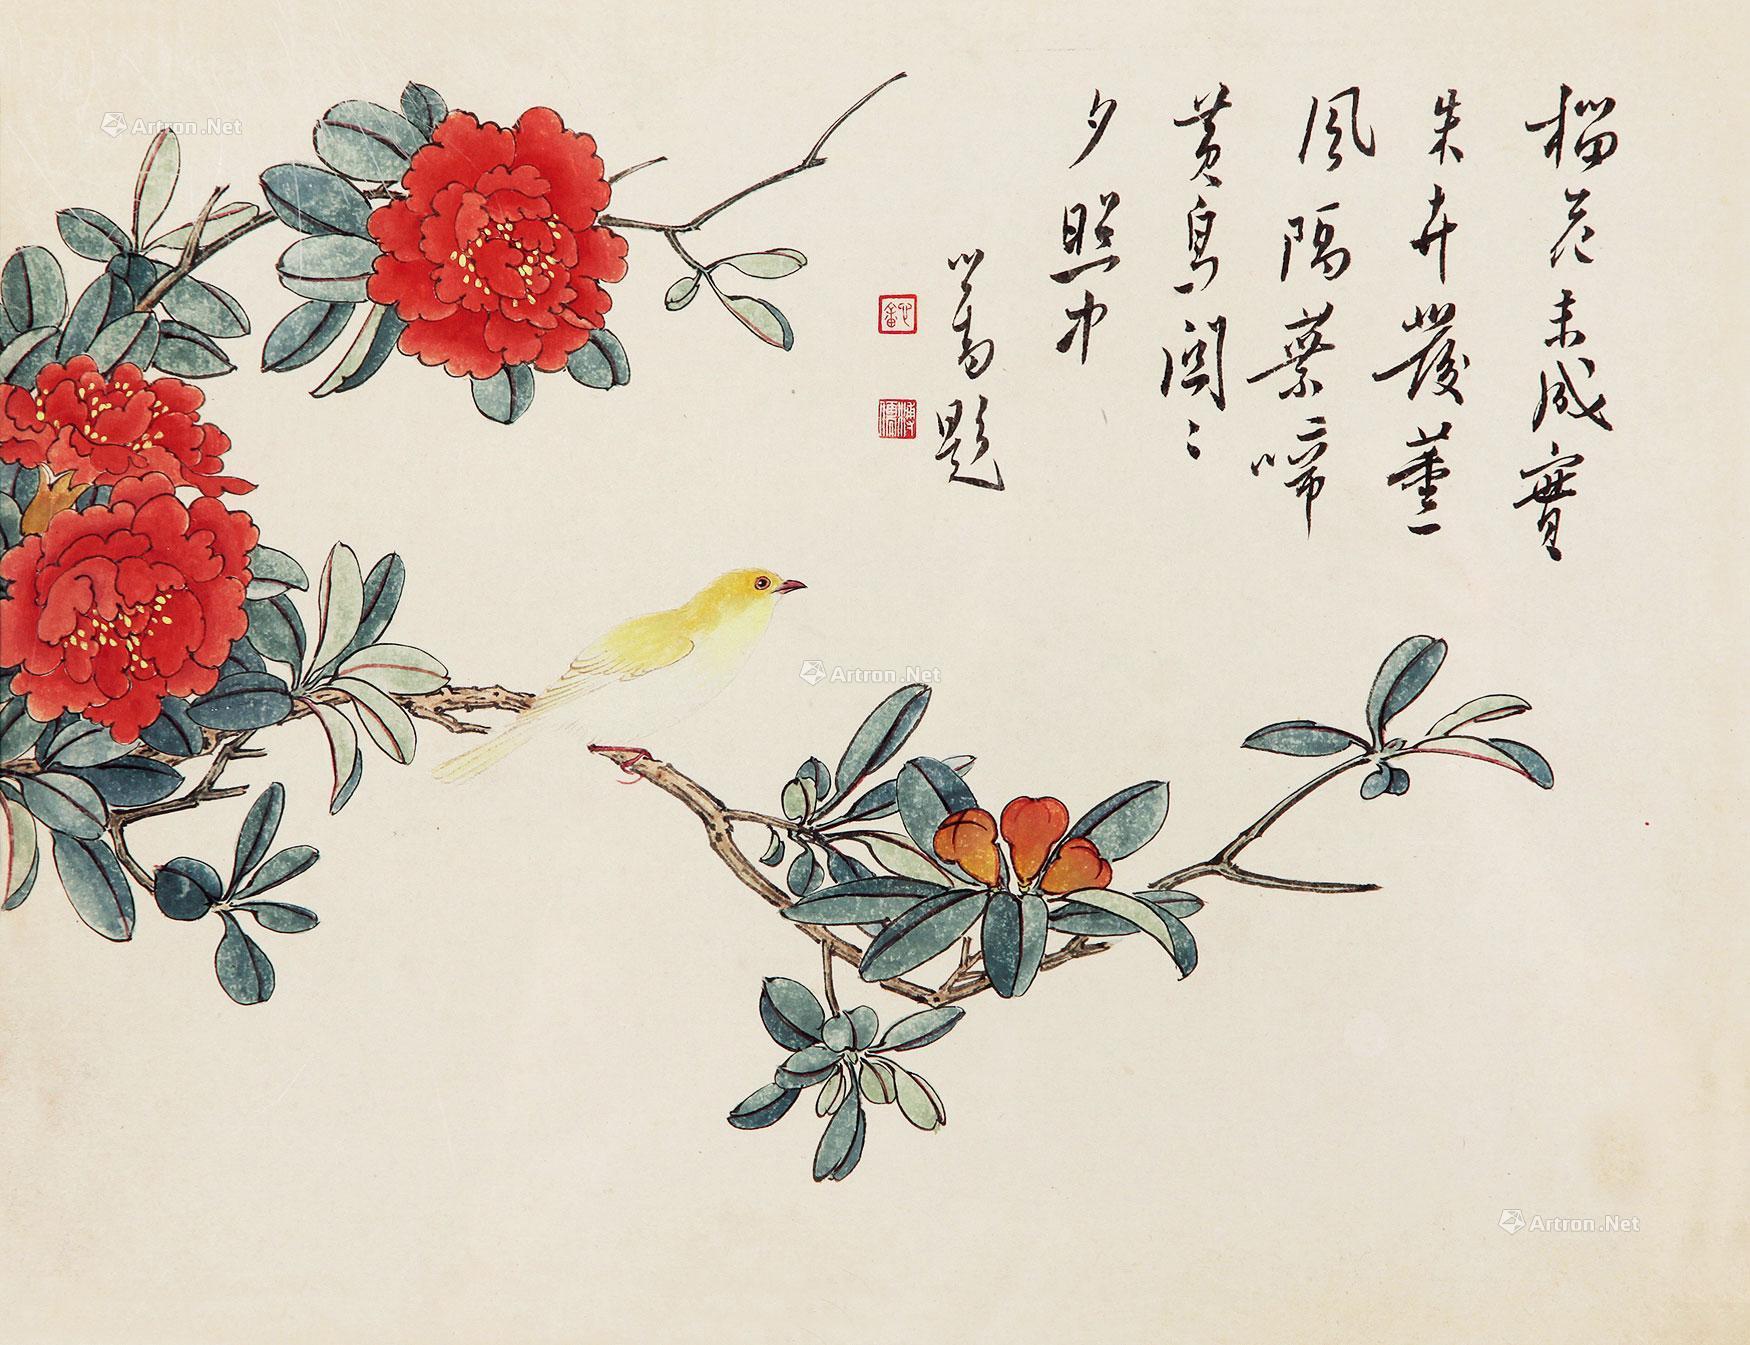 榴花未成實
朱卉發薰
風隔葉啼
黃鳥關〻
夕照中
心畬題
心畬
溥儒
Artron.Net
Artron.Net
Artron.Net